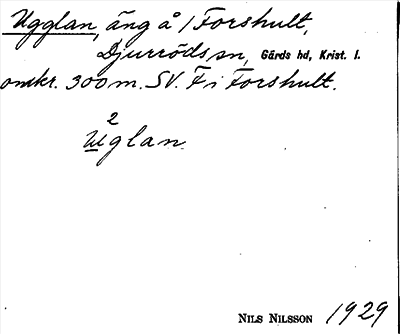 Ugglan, äng å 1 Forshult,
Djurröds sn, Gärds hd, Krist. l.
omkr. 300 m. SV. F i Forshult.
2
Uglan.
NILS NILSSON 1929